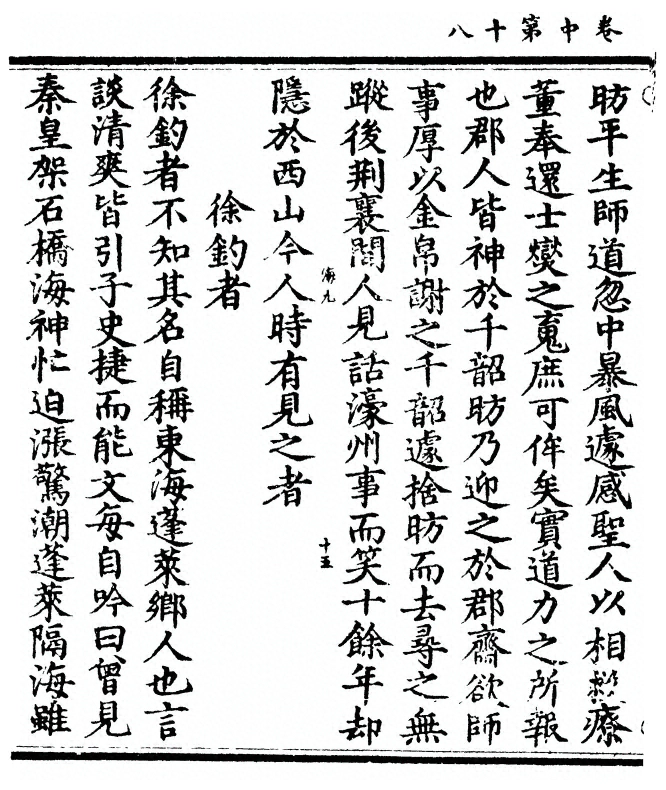 卷中第十八
昉平生師道忽中暴風遽感聖人以相救療
董奉還士燮之䰟庶可侔矣實道力之所報
也郡人皆神於千韶昉乃迎之於郡齋欲師
事厚以金帛謝之千韶遽捨昉而去尋之無
蹤後荆襄間人見話濠州事而笑十餘年却
隱於西山今人時有見之者
海九
十五
徐釣者
徐釣者不知其名自稱東海蓬萊鄉人也言
談清爽皆引子史捷而能文每自吟曰曾見
秦皇架石橋海神忙迫漲驚潮蓬萊隔海雖